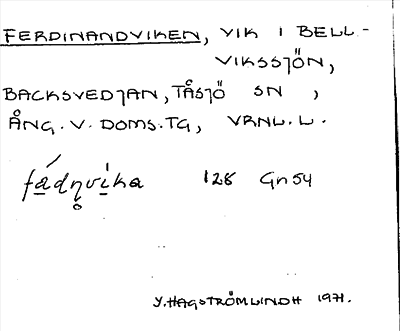 FERDINANDVIKEN, VIK I BELL-
VIKSSJÖN,
BACKSVEDJAN, TÅSJÖ SN ,
ÅNG. V. DOMS. TG, VRNL. L.
fá̱dn̥vi̱̍ka 128 Gn54
Y. HAGSTRÖMLINDH 1971.